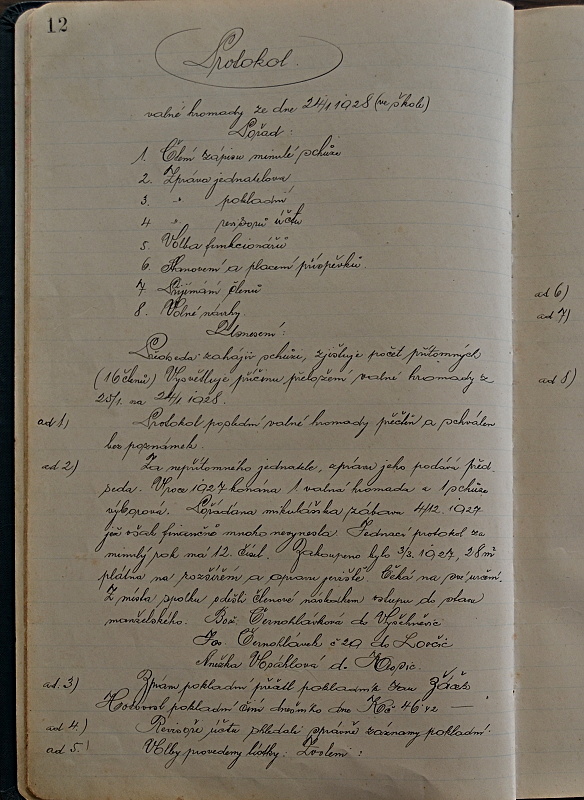 12
Protokol.
valné hromady ze dne 24/1 1928 (ve škole)
Pořad:
1. Čtení zápisu minulé schůze
2. Zpráva jednatelova
3. " pokladní
4. " revisorů účtů
5. Volba funkcionářů
6. Stanovení a placení příspěvků.
7. Přijímání členů
8. Volné návrhy.
Usnesení:
Předseda zahájiv schůzi, zjišťuje počet přítomných
(16 členů) Vysvětluje příčinu přeložení valné hromady z
25/1. na 24/1 1928.
ad 1) Protokol poslední valné hromady přečten a schválen
bez poznámek.
ad 2) Za nepřítomného jednatele, zprávu jeho podává před-
seda. V roce 1927 konána 1 valná hromada a 1 schůze
výborová. Pořádána mikulášská zábava 4/12. 1927
jež však finančně mnoho nevynesla. Jednací protokol za
minulý rok má 12. čísel. Zakoupeno bylo 3/3. 1927, 28 m
plátna na rozšíření a opravu jeviště. Čeká na své určení.
Z místa spolku odešli členové následkem vstupu do stavu
manželského. Bož. Černohlávková do
Jos. Černohlávek č 29 do Lovčic
Anežka d. Klopic.
ad. 3) Zprávu pokladní přečtl pokladník pan
Hotovost pokladní činí dnešního dne Kč 46.42 —
ad 4.) Revisoři účtů shledali správné záznamy pokladní.
ad 5.) Volby provedeny lístky. Zvoleni:
ad 6)
ad 7)
ad 8)